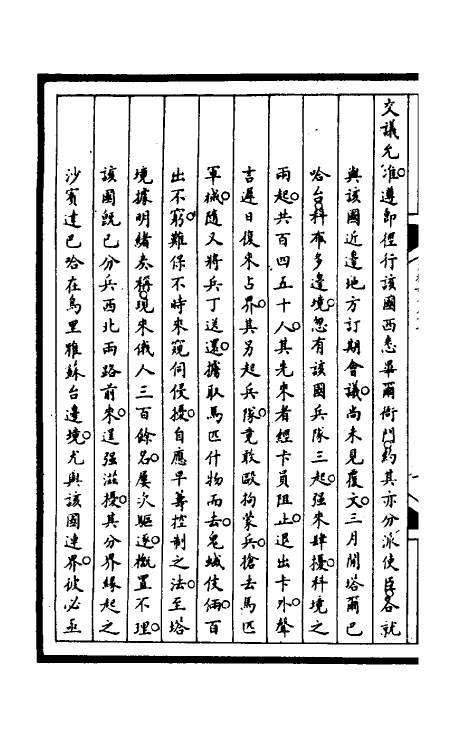 交議允准。遵即徑行該國西悉畢爾衙門。約其亦分派使臣。各就
與該國近邊地方訂期會議。尚未見覆文。三月間塔爾巴
哈台。科布多邊境。忽有該國兵隊三起。强來肆擾。科境之
兩起。共百四五十人。其先來者經卡員阻止。退出卡外。聲
言遲日復來占界。其另起兵隊。竟敢毆拘蒙兵。搶去馬匹
軍械。隨又將兵丁送還。擄取馬匹什物而去。鬼蜮伎倆。百
出不窮。難保不時來窺伺侵擾。自應早籌控制之法。至塔
境據明緒奏稱。現來俄人三百餘名。屢次驅逐。概置不理。
該國既已分兵西北兩路前來。逞强滋擾。其分界緣起之
沙賓達巴哈在烏里雅蘇台邊境。尤與該國連界。彼必亟